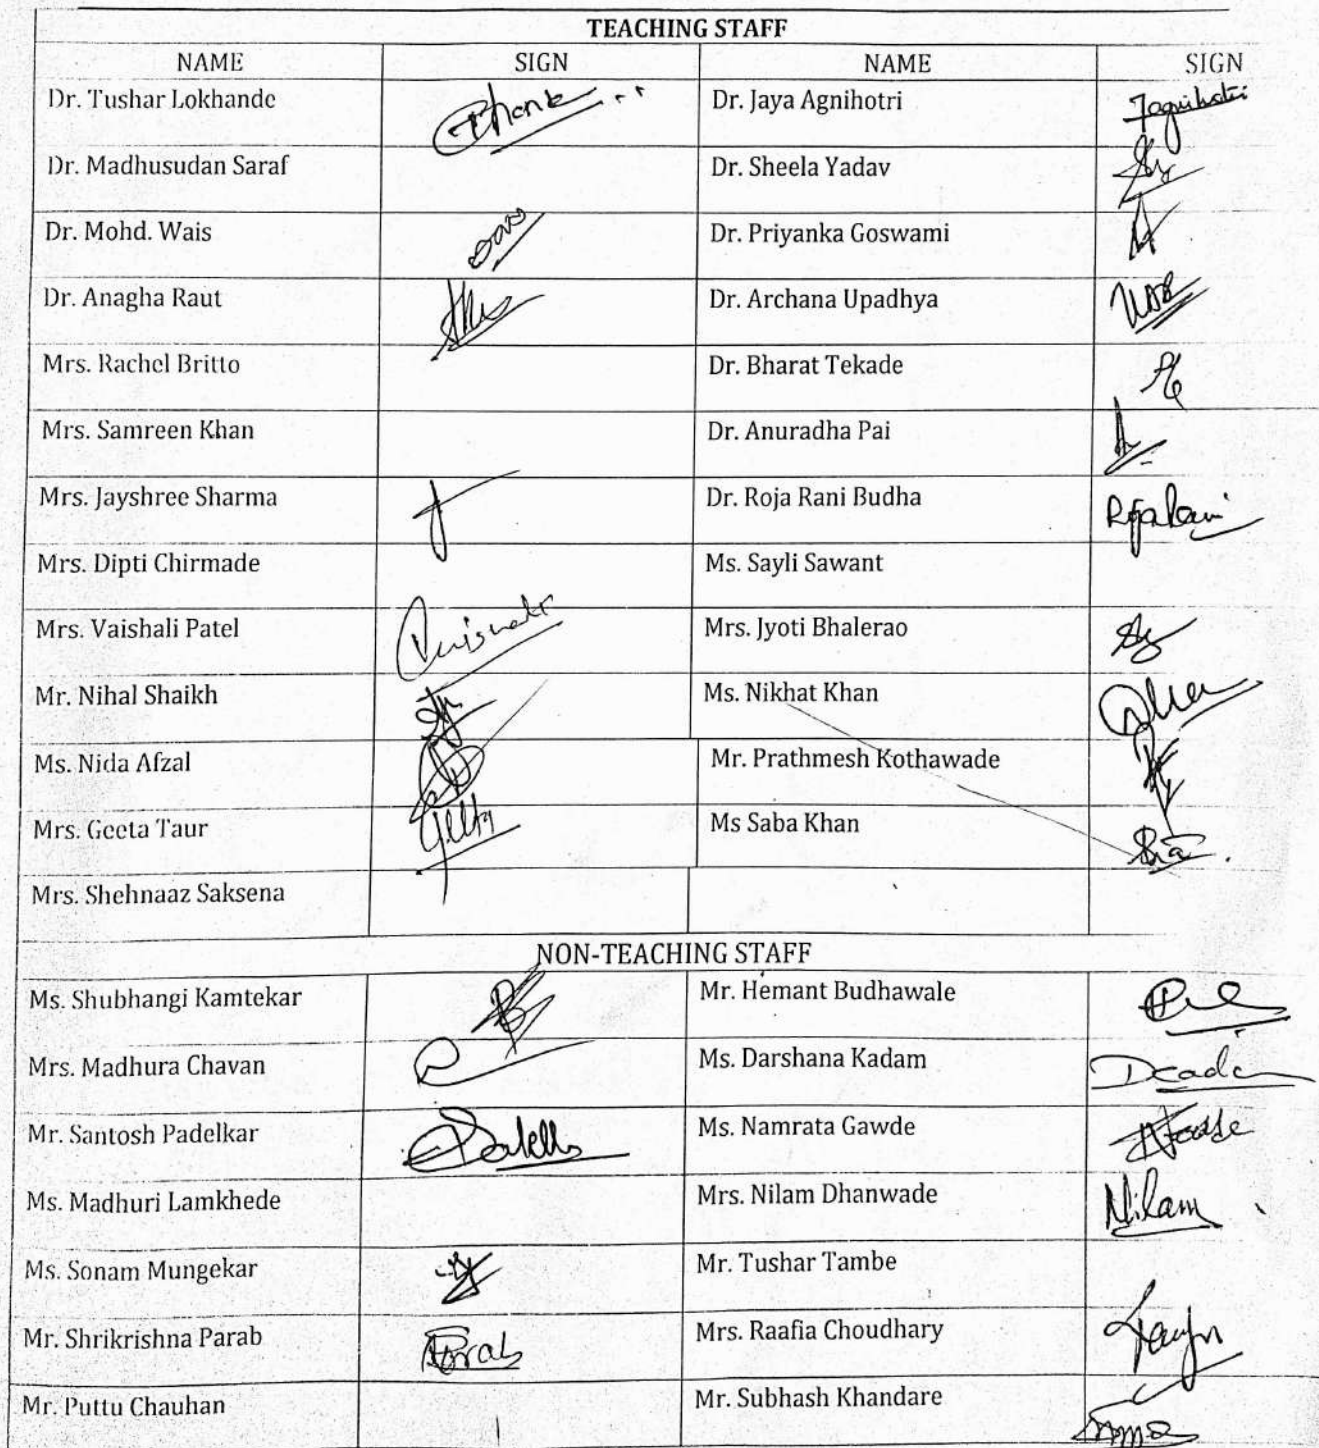 TEACHING STAFF
NAME SIGN NAME SIGN
Dr. Tushar Lokhande Dr. Jaya Agnihotri Jagnihotri
Dr. Madhusudan Saraf Dr. Sheela Yadav
Dr. Mohd. Wais Dr. Priyanka Goswami
Dr. Anagha Raut Dr. Archana Upadhya
Mrs. Rachel Britto Dr. Bharat Tekade
Mrs. Samreen Khan Dr. Anuradha Pai
Mrs. Jayshree Sharma Dr. Roja Rani Budha
Mrs. Dipti Chirmade Ms. Sayli Sawant
Mrs. Vaishali Patel Mrs. Jyoti Bhalerao
Mr. Nihal Shaikh Ms. Nikhat Khan
Ms. Nida Afzal Mr. Prathmesh Kothawade
Mrs. Geeta Taur Ms Saba Khan
Mrs. Shehnaaz Saksena
NON-TEACHING STAFF
Ms. Shubhangi Kamtekar Mr. Hemant Budhawale
Mrs. Madhura Chavan Ms. Darshana Kadam
Mr. Santosh Padelkar Ms. Namrata Gawde
Ms. Madhuri Lamkhede Mrs. Nilam Dhanwade Nilam
Ms. Sonam Mungekar Mr. Tushar Tambe
Mr. Shrikrishna Parab Parab Mrs. Raafia Choudhary
Mr. Puttu Chauhan Mr. Subhash Khandare